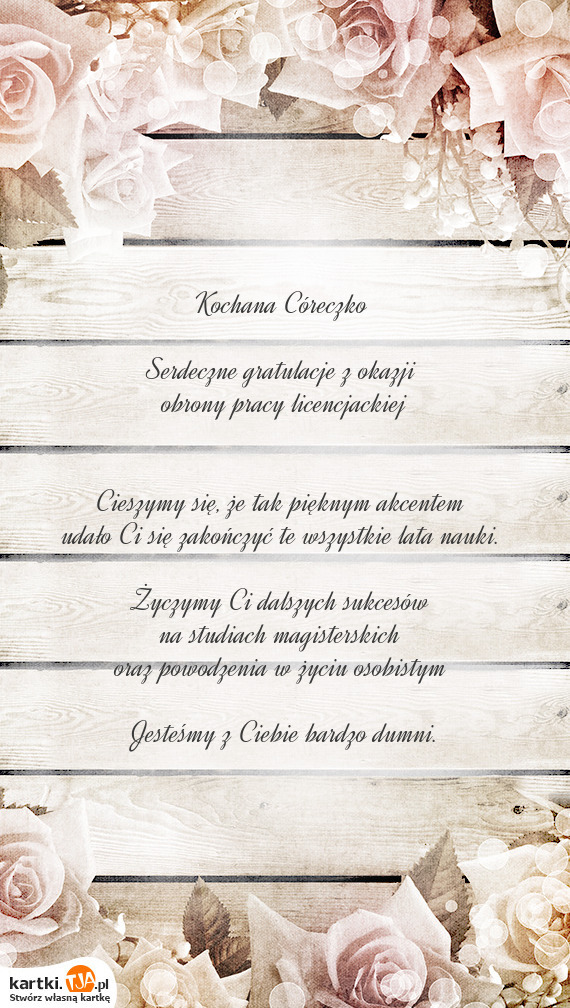 Kochana Córeczko
Serdeczne gratulacje z okazji
obrony pracy licencjackiej
Cieszymy się, że tak pięknym akcentem
udało Ci się zakończyć te wszystkie lata nauki.
Życzymy Ci dalszych sukcesów
na studiach magisterskich
oraz powodzenia w życiu osobistym
Jesteśmy z Ciebie bardzo dumni.
kartki.TJA.pl
Stwórz własną kartkę